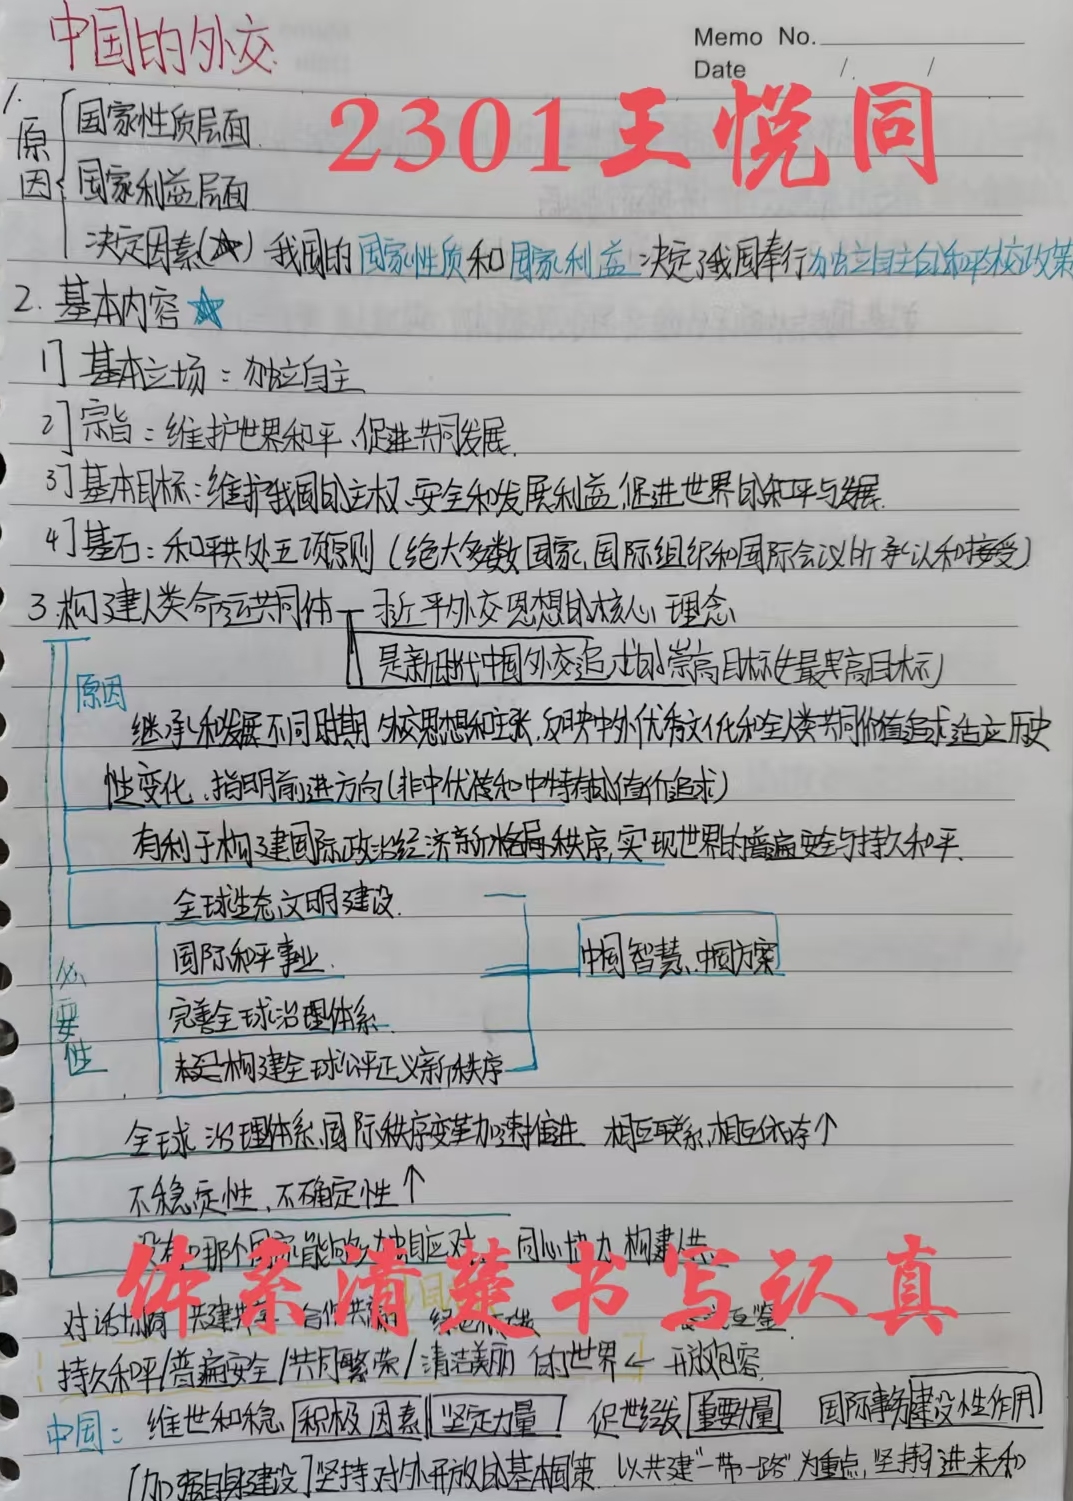 中国的外交
Memo No.
Date / /
2301王悦同
1.
原因
国家性质层面
国家利益层面
决定因素(☆) 我国的国家性质和国家利益决定了我国奉行独立自主的和平外交政策
2.基本内容☆
1]基本立场：独立自主
2]宗旨：维护世界和平、促进共同发展.
3]基本目标：维护我国的主权、安全和发展利益,促进世界的和平与发展.
4]基石：和平共处五项原则(绝大多数国家、国际组织和国际会议所承认和接受)
3.构建人类命运共同体 习近平外交思想的核心理念
是新时代中国外交追求的崇高目标(非最高目标)
原因
继承和发展不同时期外交思想和主张,反映中外优秀文化和全人类共同价值追求适应历史
性变化、指明前进方向(非中优传和中特有的值价追求)
有利于构建国际政治经济新格局秩序,实现世界的普遍安全与持久和平.
全球生态文明建设.
国际和平事业.
中国智慧、中国方案
必要性
完善全球治理体系.
构建全球公平正义新秩序
全球治理体系、国际秩序变革加速推进 相互联系,相互依存↑
不稳定性、不确定性↑
没有哪个国家能够独自应对 同心协力 构建人共
体系清楚书写认真
对话协商 共建共享 合作共赢 绿色低碳 交流互鉴.
持久和平/普遍安全/共同繁荣/清洁美丽 的世界← 开放包容.
中国：维世和稳 积极因素 坚定力量 促世经发 重要力量 国际事务建设性作用
[加强自身建设]坚持对外开放的基本国策.以共建"一带一路"为重点,坚持引进来和